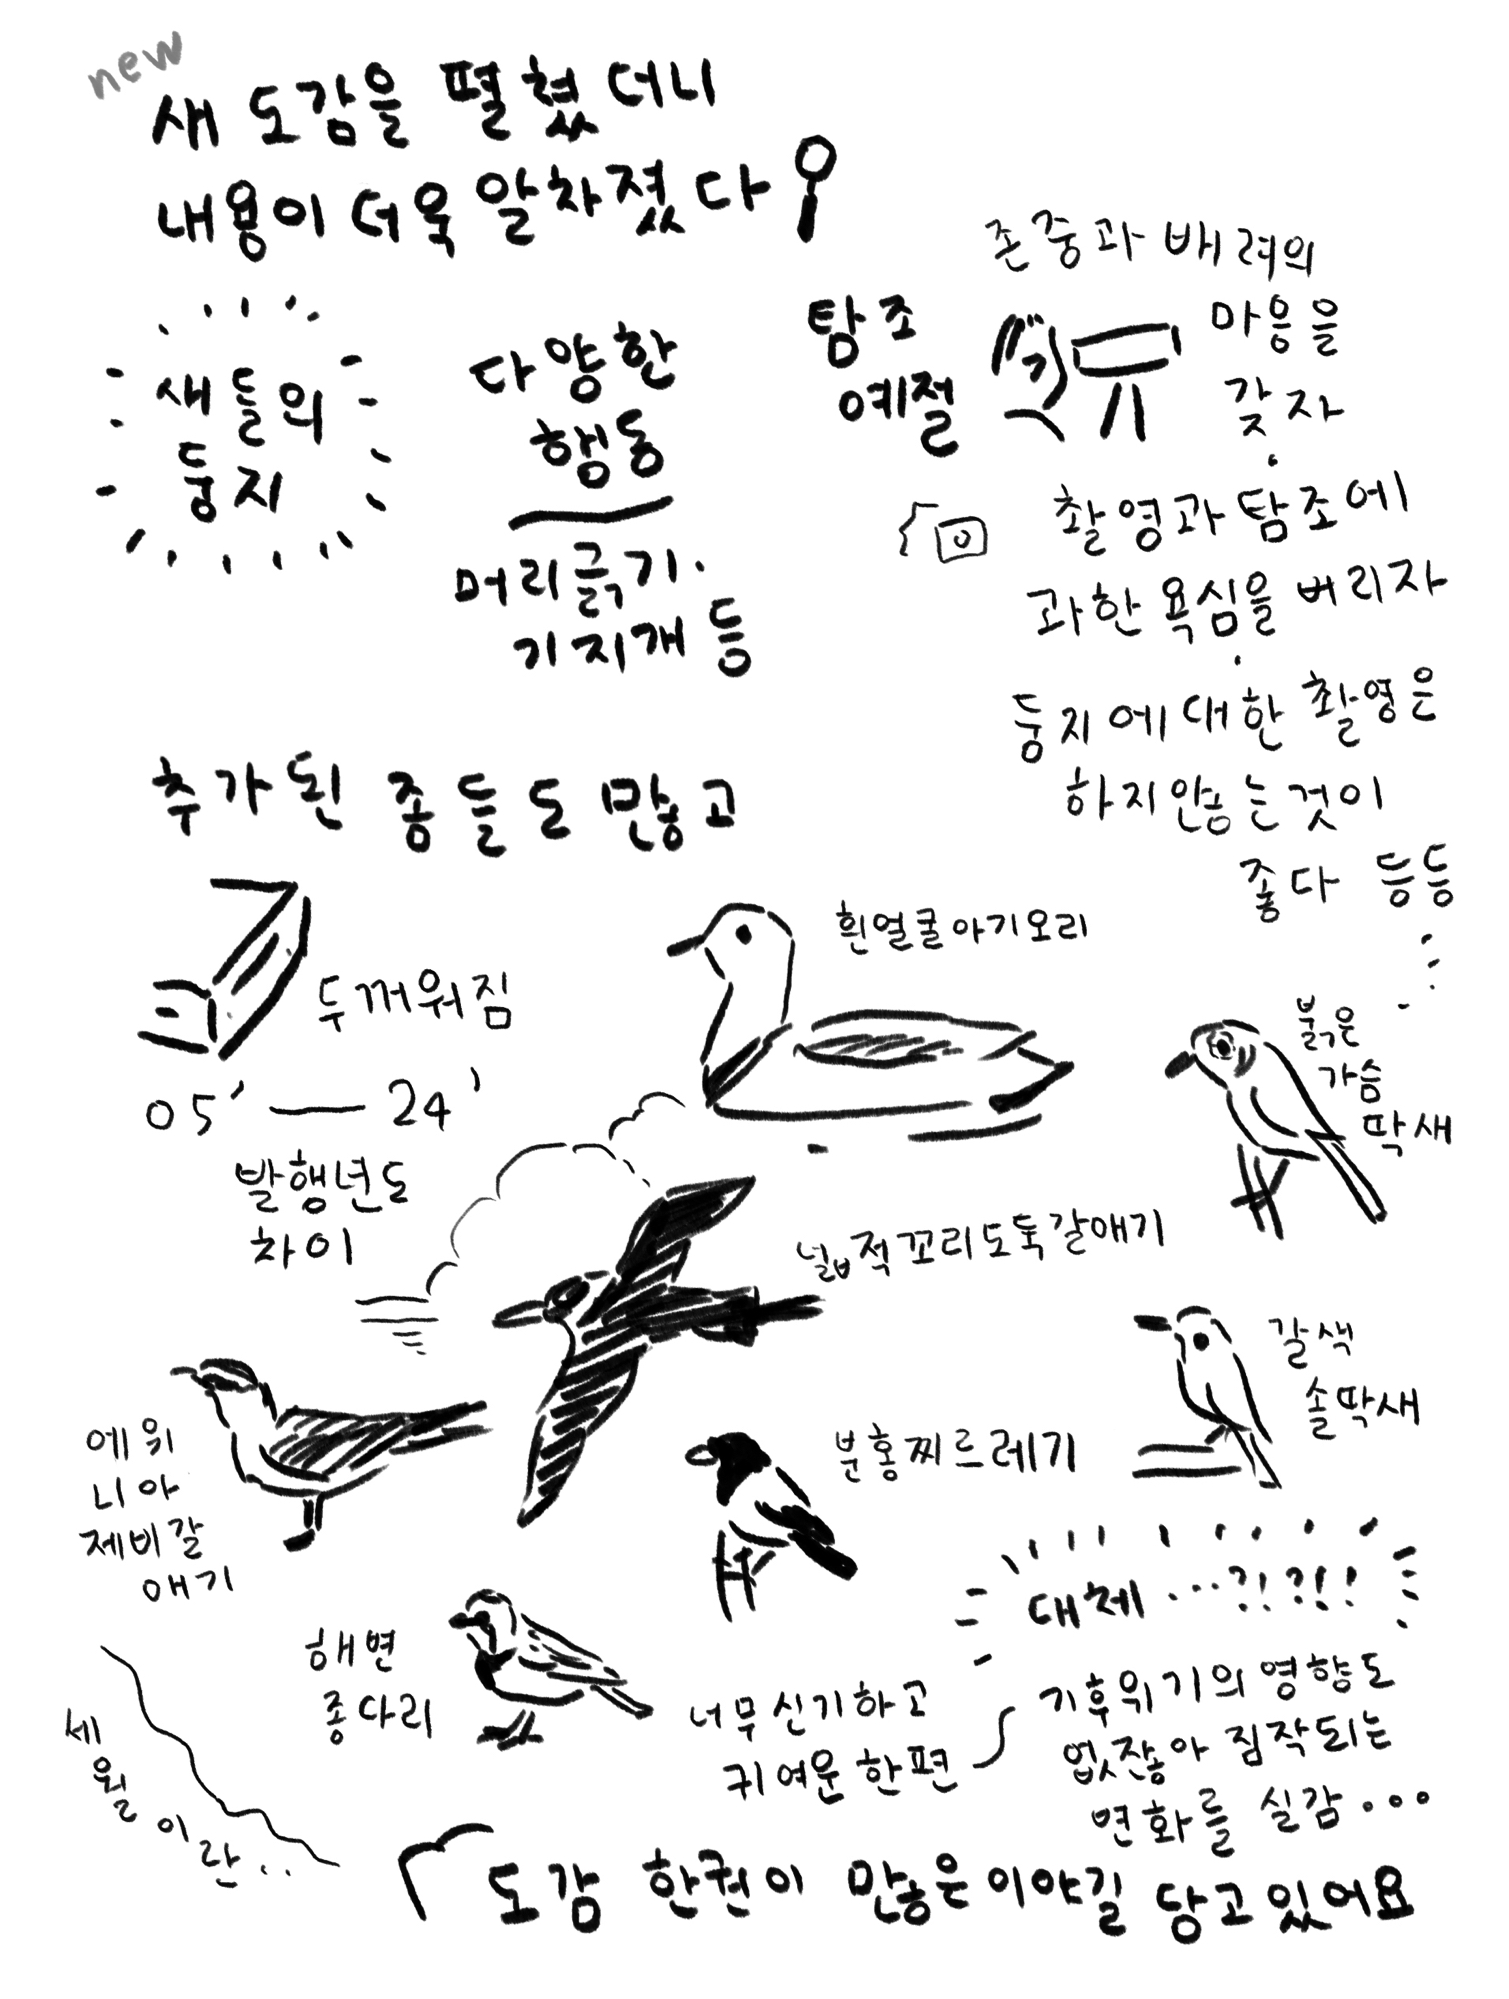 new
새 도감을 펼쳤더니
내용이 더욱 알차졌다
새들의
둥지
다양한
행동
머리긁기.
기지개 등
탐조
예절
존중과 배려의
마음을
갖자
촬영과 탐조에
과한 욕심을 버리자
둥지에 대한 촬영은
하지않는것이
좋다 등등
추가된 종들도 많고
두꺼워짐
05' — 24'
발행년도
차이
흰얼굴아기오리
붉은
가슴
딱새
넓적꼬리도둑갈매기
갈색
솔딱새
에위
니아
제비갈
매기
분홍찌르레기
해변
종다리
대체...?!?!!
너무 신기하고
귀여운 한편
기후위기의 영향도
없잖아 짐작되는
변화를 실감...
세
월
이
란..
도감 한권이 많은 이야길 담고있어요